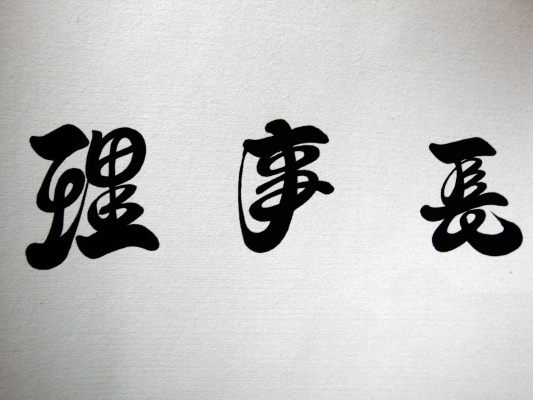 理事長